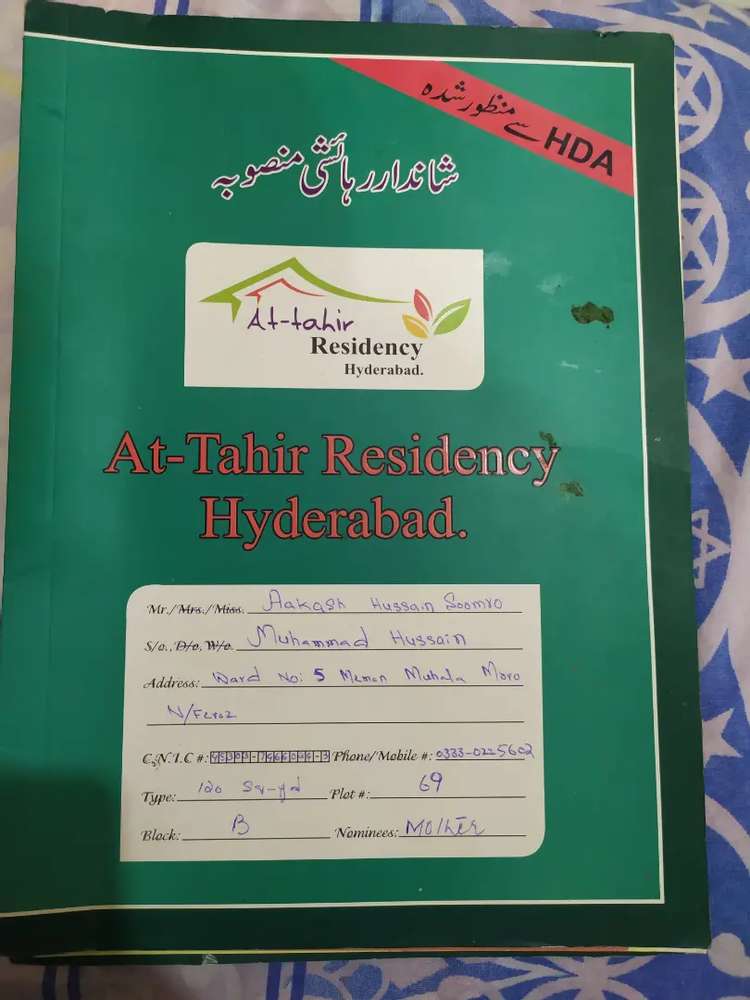 HDA سے منظور شدہ
شاندار رہائشی منصوبہ
At-tahir
Residency
Hyderabad.
At-Tahir Residency
Hyderabad.
Mr./Mrs./Miss. Aakash Hussain Soomro
S/o.,D/o, W/o. Muhammad Hussain
Address: Ward No: 5 Memon Muhala Moro
N/Feroz
C.N.I.C #: Phone/Mobile #: 0333-0225602
Type: 120 Sq-yd Plot #: 69
Block: B Nominees: Mother